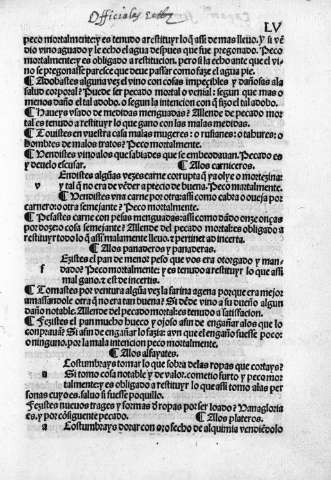 Officiales
LV
peco mortalmente:y es tenudo a restituyr lo q̃ assi de mas lleuo. Y si vẽ
dio vino aguado y le echo el agua despues que fue pregonado. Peco
mortalmente:y es obligado a restitucion. pero si la echo ante que el vi-
no se pregonasse paresce que deue passar como fuye el agua pie.
¶ Adobastes alguna vez el vino con cosas impecibles y dañosas ala
salud corporal? Puede ser pecado mortal o venial: segun que mas o
menos daño el tal adobo. o segun la intencion con q̃ fizo el tal adobo.
¶ Haueys vsado de medidas menguadas? Allende de pecado mor
tal es tenudo a restituyr lo que gano con las malas medidas.
¶ Touistes en vuestra casa malas mugeres: o rufianes: o tahures: o
hombres de malos tratos? Peco mortalmente.
¶ Vendistes vino alos que sabiades que se embeodauan. Pecado es
y deuelo escusar. ¶ Alos carniceros.
Endistes algũas vezes carne corrupta q̃ ya olye o mortezina:
v y tal q̃ no era de vẽder a precio de buena. Peco mortalmente.
¶ Vendistes vna carne por otra: assi como cabra o oueja por
carnero: o otra semejante? Peco mortalmente.
¶ Pesastes carne con pesas menguadas: assi como dãdo onze onças
por doze: o cosa semejante? Allende del pecado mortal: es obligado a
restituyr todo lo q̃ assi malamente lleuo. pertinet ad incerta.
¶ Alos panaderos y panaderas.
Ezistes el pan de menor peso que vos era otorgado y man-
f dado? Peco mortalmente: y es tenudo a restituyr lo que assi
mal gano. z est de incertis.
¶ Tomastes por ventura algũa vez la farina agena porque era mejor
amassandole otra q̃ no era tan buena? Si dẽde vino a su dueño algun
daño notable. Allende del pecado mortal: es tenudo a satisfacion.
¶ Fezistes el pan mucho hueco y ojoso afin de engañar alos que lo
conprauã? Si afin de engañar lo fazia: avn que el engaño fuesse poco:
o ninguno. por la mala intencion peco mortalmente.
¶ Alos alfayates.
Costumbrays tomar lo que sobra delas ropas que cortays?
a Si tomo cosa notable y de valor. cometio furto y peco mor
talmente: y es obligado a restituyr lo que assi tomo alas per
sonas cuyo es. saluo si fuesse poquillo.
Fezistes nueuos trages y formas d̃ ropas por ser loado? Vanagloria
es, y por cõsiguente pecado. ¶ Alos plateros.
a Costumbrays dorar con oro fecho de alquimia vendiẽdolo